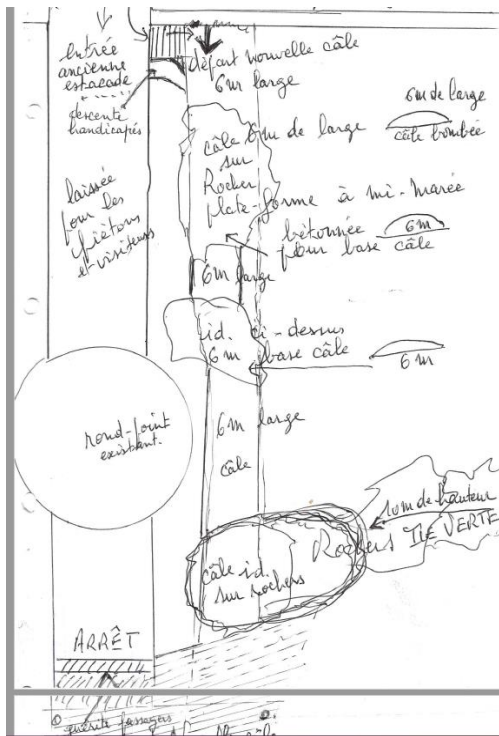 entrée
ancienne
estacade
descente
handicapés
laissée
pour les
piétons
et visiteurs
départ nouvelle câle
6m large
6m de large
câle bombée
câle 6m de large
sur
Rocher
plate-forme à mi-marée
bétonnée
pour base câle
6m
6m large
id. ci-dessus
6m base câle
6m
rond-point
existant.
6m large
câle
10m de hauteur
Rochers ILE VERTE
câle id.
sur rochers
ARRÊT
guérite passagers